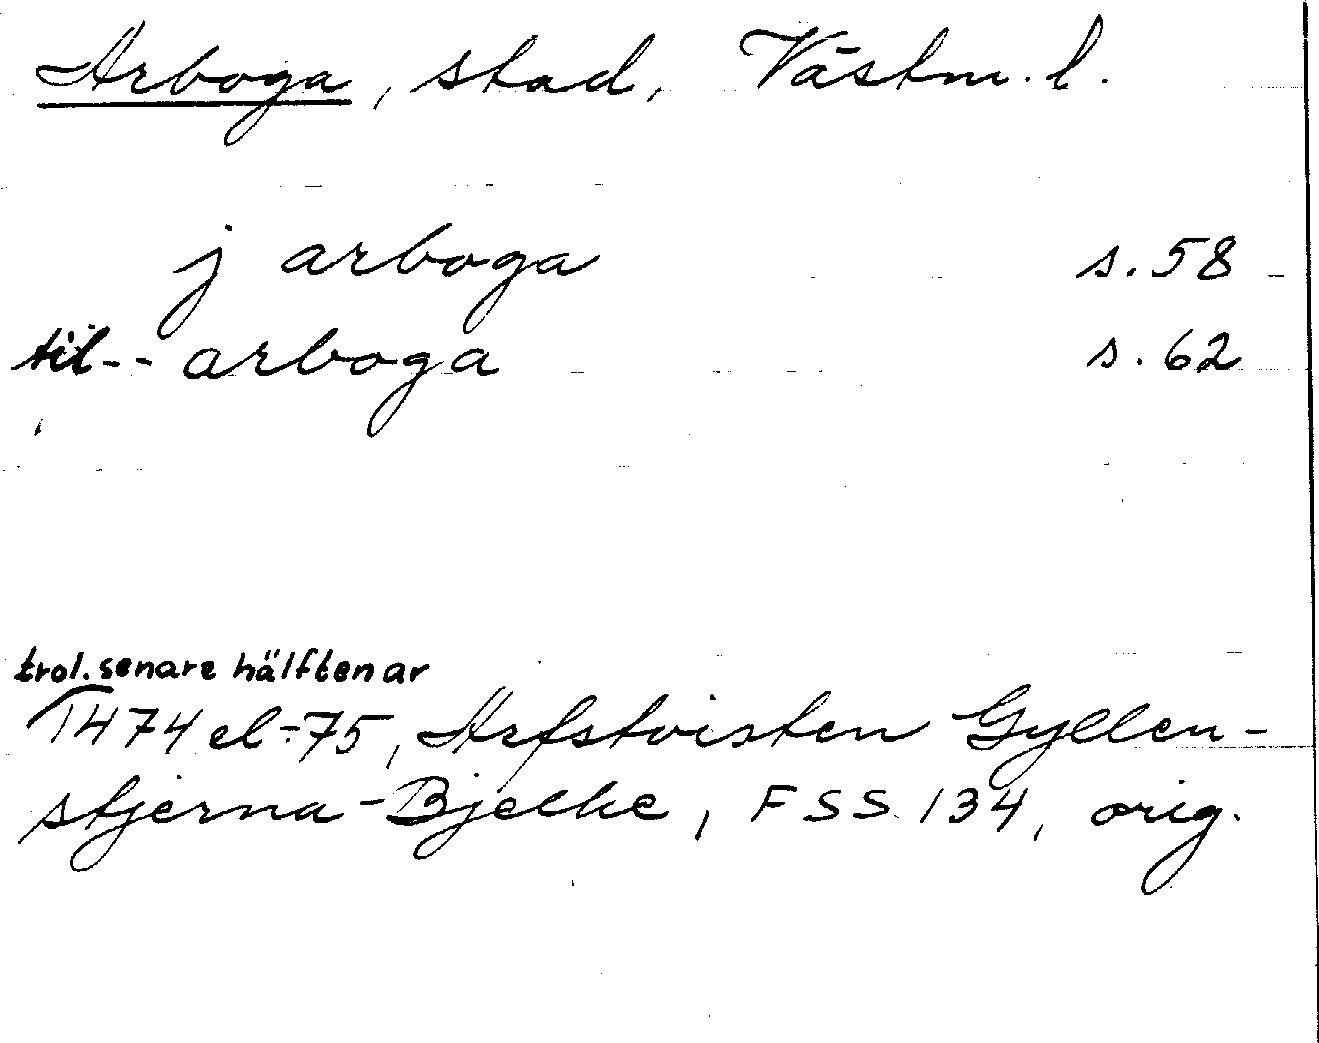 Arboga, stad, Västm. l.
j arboga s. 58
til-- arboga s. 62
trol. senare hälften av
1474 el. -75, Arfstvisten Gyllen-
stjerna-Bjelke, FSS 134, orig.